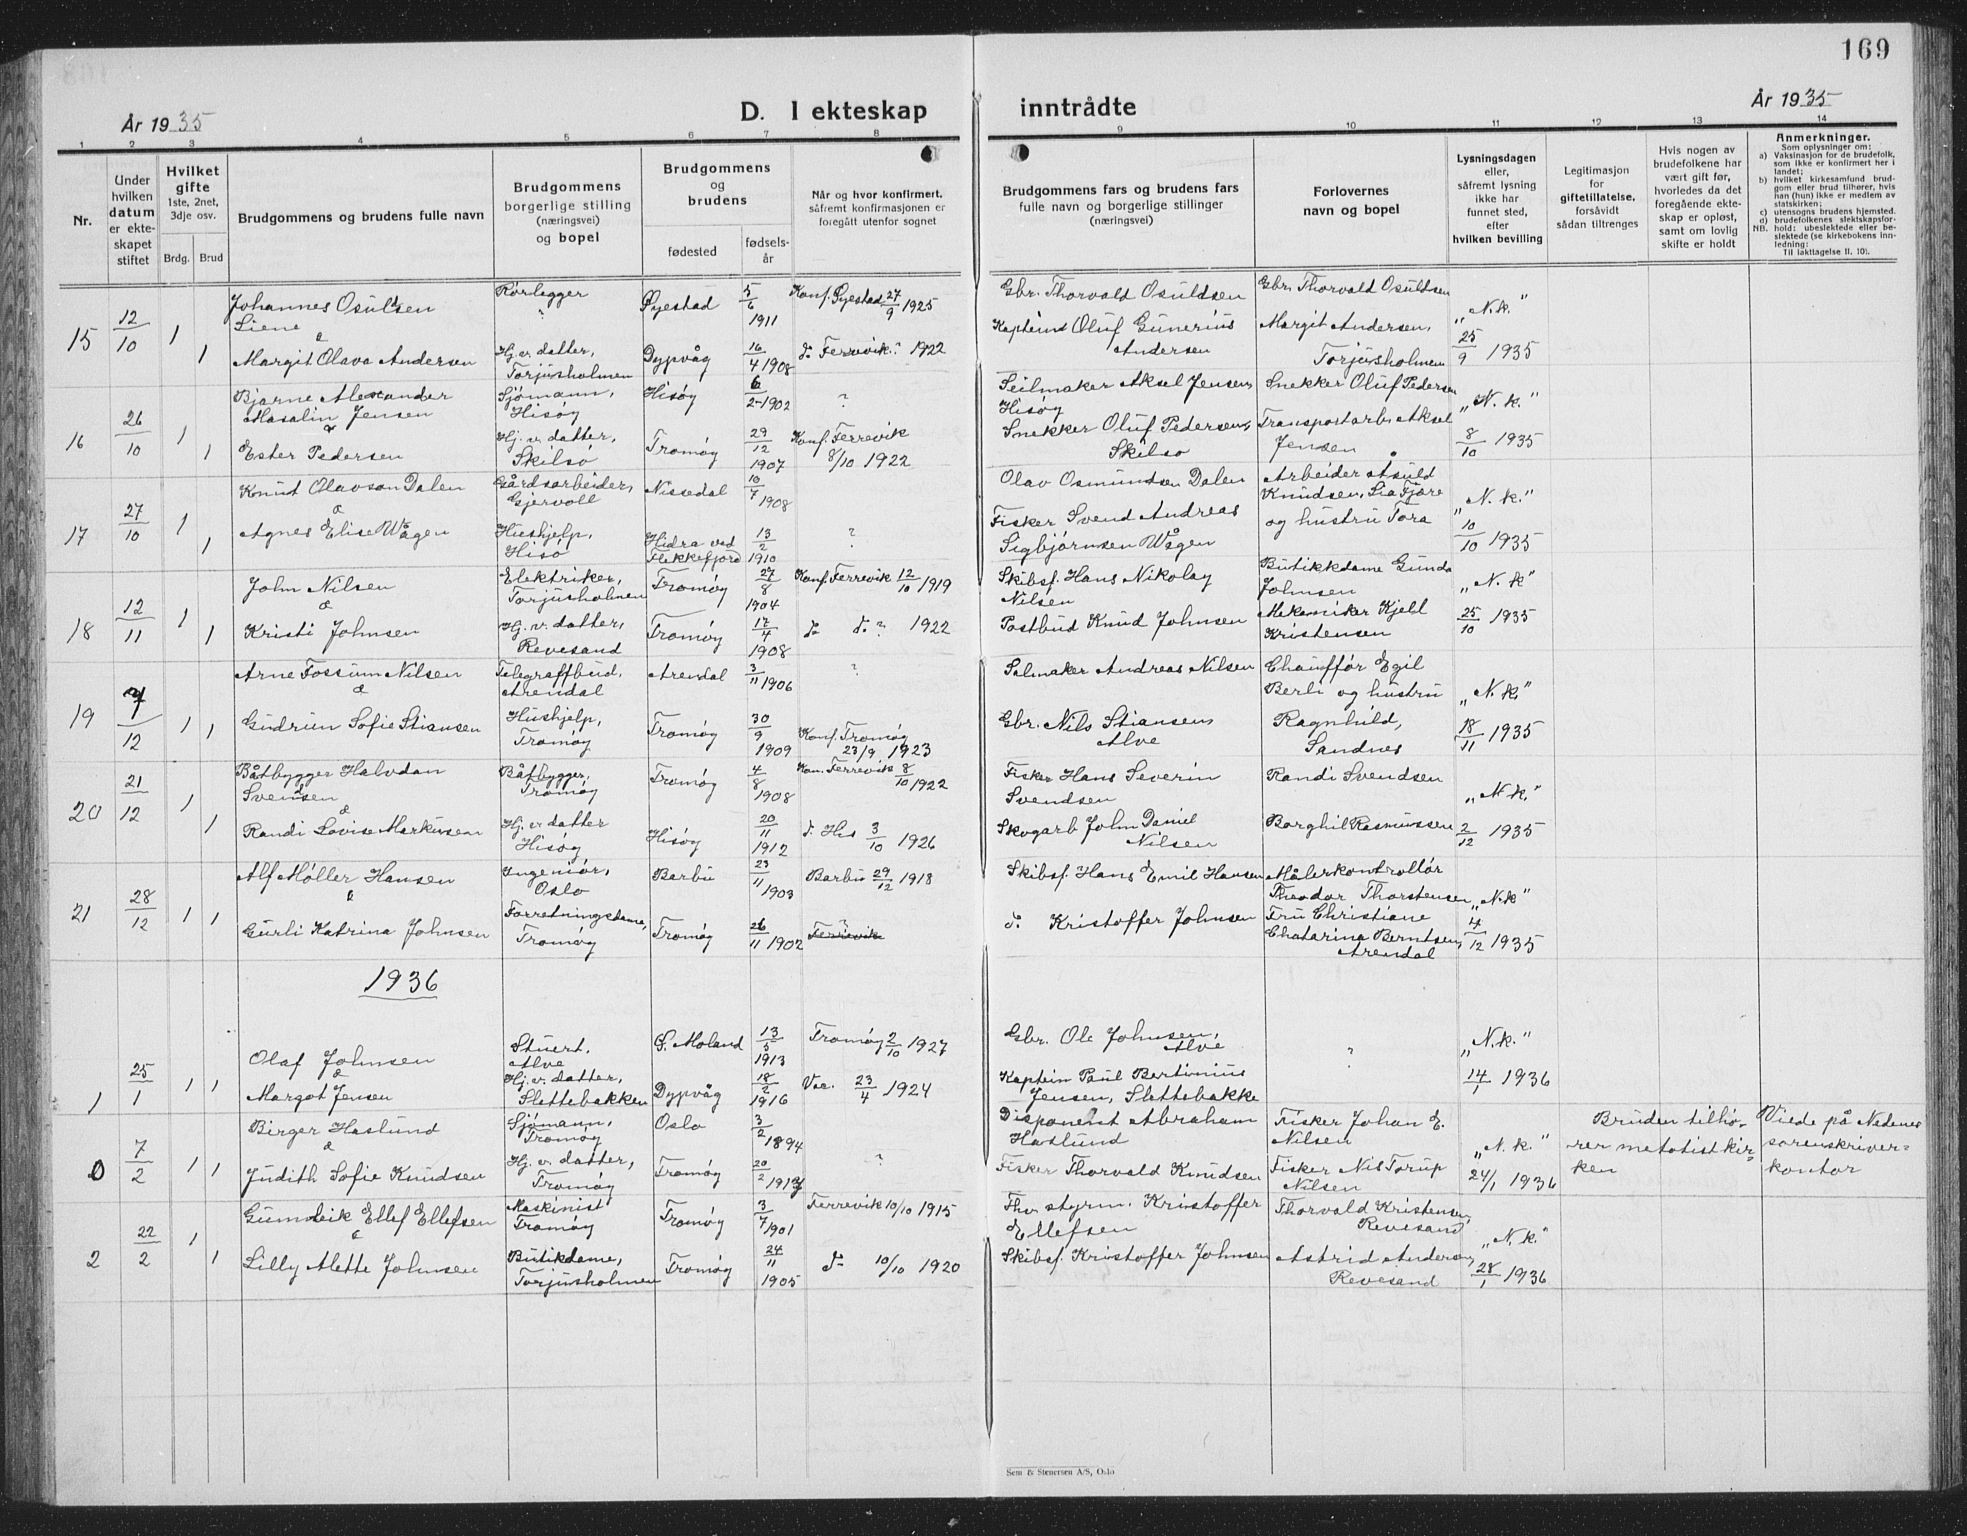 169
År 1935
D. I ekteskap inntrådte
År 1935
1 2 3 4 5 6 7 8 9 10 11 12 13 14
Nr.
Under hvilken datum er ekteskapet stiftet
Hvilket gifte 1ste, 2net, 3dje osv.
Brdg. Brud
Brudgommens og brudens fulle navn
Brudgommens borgerlige stilling (næringsvei) og bopel
Brudgommens og brudens
fødested
fødselsår
Når og hvor konfirmert, såfremt konfirmasjonen er foregått utenfor sognet
Brudgommens fars og brudens fars fulle navn og borgerlige stillinger (næringsvei)
Forlovernes navn og bopel
Lysningsdagen eller, såfremt lysning ikke har funnet sted, efter hvilken bevilling
Legitimasjon for giftetillatelse, forsåvidt sådan tiltrenges
Hvis nogen av brudefolkene har vært gift før, hvorledes da det foregående ekteskap er opløst, samt om lovlig skifte er holdt
Anmerkninger.
Som oplysninger om:
a) Vaksinasjon for de brudefolk, som ikke er konfirmert her i landet;
b) hvilket kirkesamfund brudgom eller brud tilhører, hvis han (hun) ikke er medlem av statskirken;
c) utensogns brudens hjemsted.
d) brudefolkenes slektskapsforhold: ubeslektede eller beslektede (se kirkebokens innledning:
NB.
Til iakttagelse II. 10).
15 12/10 1 Johannes Osuldsen Liene Rørlegger " Øyestad 5/6 1911 Konf. Øyestad 27/9 1925 Gbr. Thorvald Osuldsen Gbr. Thorvald Osuldsen "N.k."
& 1 Margit Olava Andersen Hj.v. datter, Torjusholmen Dypvåg 16/4 1908 do Færrevik? 1922 Kaptein Oluf Gunerius Andersen Margit Andersen, Torjusholmen 25/9 1935
16 26/10 1 Bjarne Alexander Masalin Jensen Sjømann, Hisøy Hisøy 6/2 1902 ? Seilmaker Aksel Jensen, Hisøy Snekker Oluf Pedersen "N.k."
& 1 Ester Pedersen Hj.v. datter, Skilsø Tromøy 29/12 1907 Konf. Færrevik 8/10 1922 Snekker Oluf Pedersen, Skilsø Transportarb. Aksel Jensen 8/10 1935
17 27/10 1 Knut Olavson Dalen Gårdsarbeider, Gjervoll Nissedal 10/7 1908 Olav Osmundsen Dalen Arbeider Asuld Knudsen, Lia Fjære "N.k."
& 1 Agnes Elise Wågen Hushjelp, Hisø Hidra ved Flekkefjord 13/2 1910 ? Fisker Svend Andreas Sigbjørnsen Wågen og hustru Tora 10/10 1935
18 12/11 1 John Nilsen Elektriker, Torjusholmen Tromøy 27/8 1904 Konf. Færrevik 12/10 1919 Skibsf. Hans Nikolay Nilsen Butikkdame Gunda Johnsen "N.k"
& 1 Kristi Johnsen Hj.v. datter, Revesand Tromøy 17/4 1908 do do ? 1922 Postbud Knud Johnsen Mekaniker Kjell Kristensen 25/10 1935
19 7/12 1 Arne Fossum Nilsen Telegrafbud, Arendal Arendal 3/11 1906 ? Salmaker Andreas Nilsen Chauffør Egil Berli og hustru "N.k."
& 1 Gudrun Sofie Stiansen Hushjelp, Tromøy Tromøy 30/9 1909 Konf. Tromøy 23/9 1923 Gbr. Nils Stiansen, Alve Ragnhild, Sandnes 18/11 1935
20 21/12 1 Båtbygger Halvdan Svendsen Båtbygger, Tromøy Tromøy 4/8 1908 Kon. Færrevik 8/10 1922 Fisker Hans Severin Svendsen Randi Svendsen "N.k."
& 1 Randi Lovise Markusen Hj.v datter Hisøy Hisøy 20/11 1912 do His 3/10 1926 Skogarb John Daniel Nilsen Borghil Rasmussen 2/12 1935
21 28/12 1 Alf Møller Hansen Ingeniør, Oslo Barbu 23/11 1903 Barbu 29/12 1918 Skibsf. Hans Emil Hansen Målerkontrollør Theodor Thorstensen "N.k"
& 1 Gurli Katrina Johnsen Forretningsdame, Tromøy Tromøy 26/11 1902 ? Færrevik do Kristoffer Johnsen Fru Christiane Chatarina Berntsen, Arendal 4/12 1935
1936
1 25/1 1 Olaf Johnsen Stuert, Alve S. Moland 13/5 1913 Tromøy 2/10 1927 Gbr. Ole Johnsen, Alve ? "N.k."
& 1 Margot Jensen Hj.v. datter, Slettebakken Dypvåg 18/2 1916 Vac. 23/4 1924 Kaptein Paul Bertinius Jensen, Slettebakke 14/1 1936
0 7/2 1 Birger Haslund Sjømann, Tromøy Oslo 3/2 1894 Disponent Abraham Haslund Fisker Johan E. Nilsen "N.k." Bruden tilhører metotistkirken Viede på Nedenes sorenskriverkontor
& 1 Judith Sofie Knudsen Hj.v. datter, Tromøy Tromøy 20/2 1913 ? Fisker Thorvald Knudsen Fisker Nils Torup Nilsen 24/1 1936
2 22/2 1 Gunvik Ellef Ellefsen Maskinist Tromøy Tromøy 3/7 1901 Færrevik 10/10 1915 Fhv. styrm. Kristoffer Ellefsen Thorvald Kristensen, Revesand "N.k."
& 1 Lilly Alette Johnsen Butikdame, Torjusholmen Tromøy 24/11 1905 do 10/10 1920 Skibsf. Kristoffer Johnsen Astrid Andersen, Revesand 28/1 1936
Sem & Stenersen A/S, Oslo